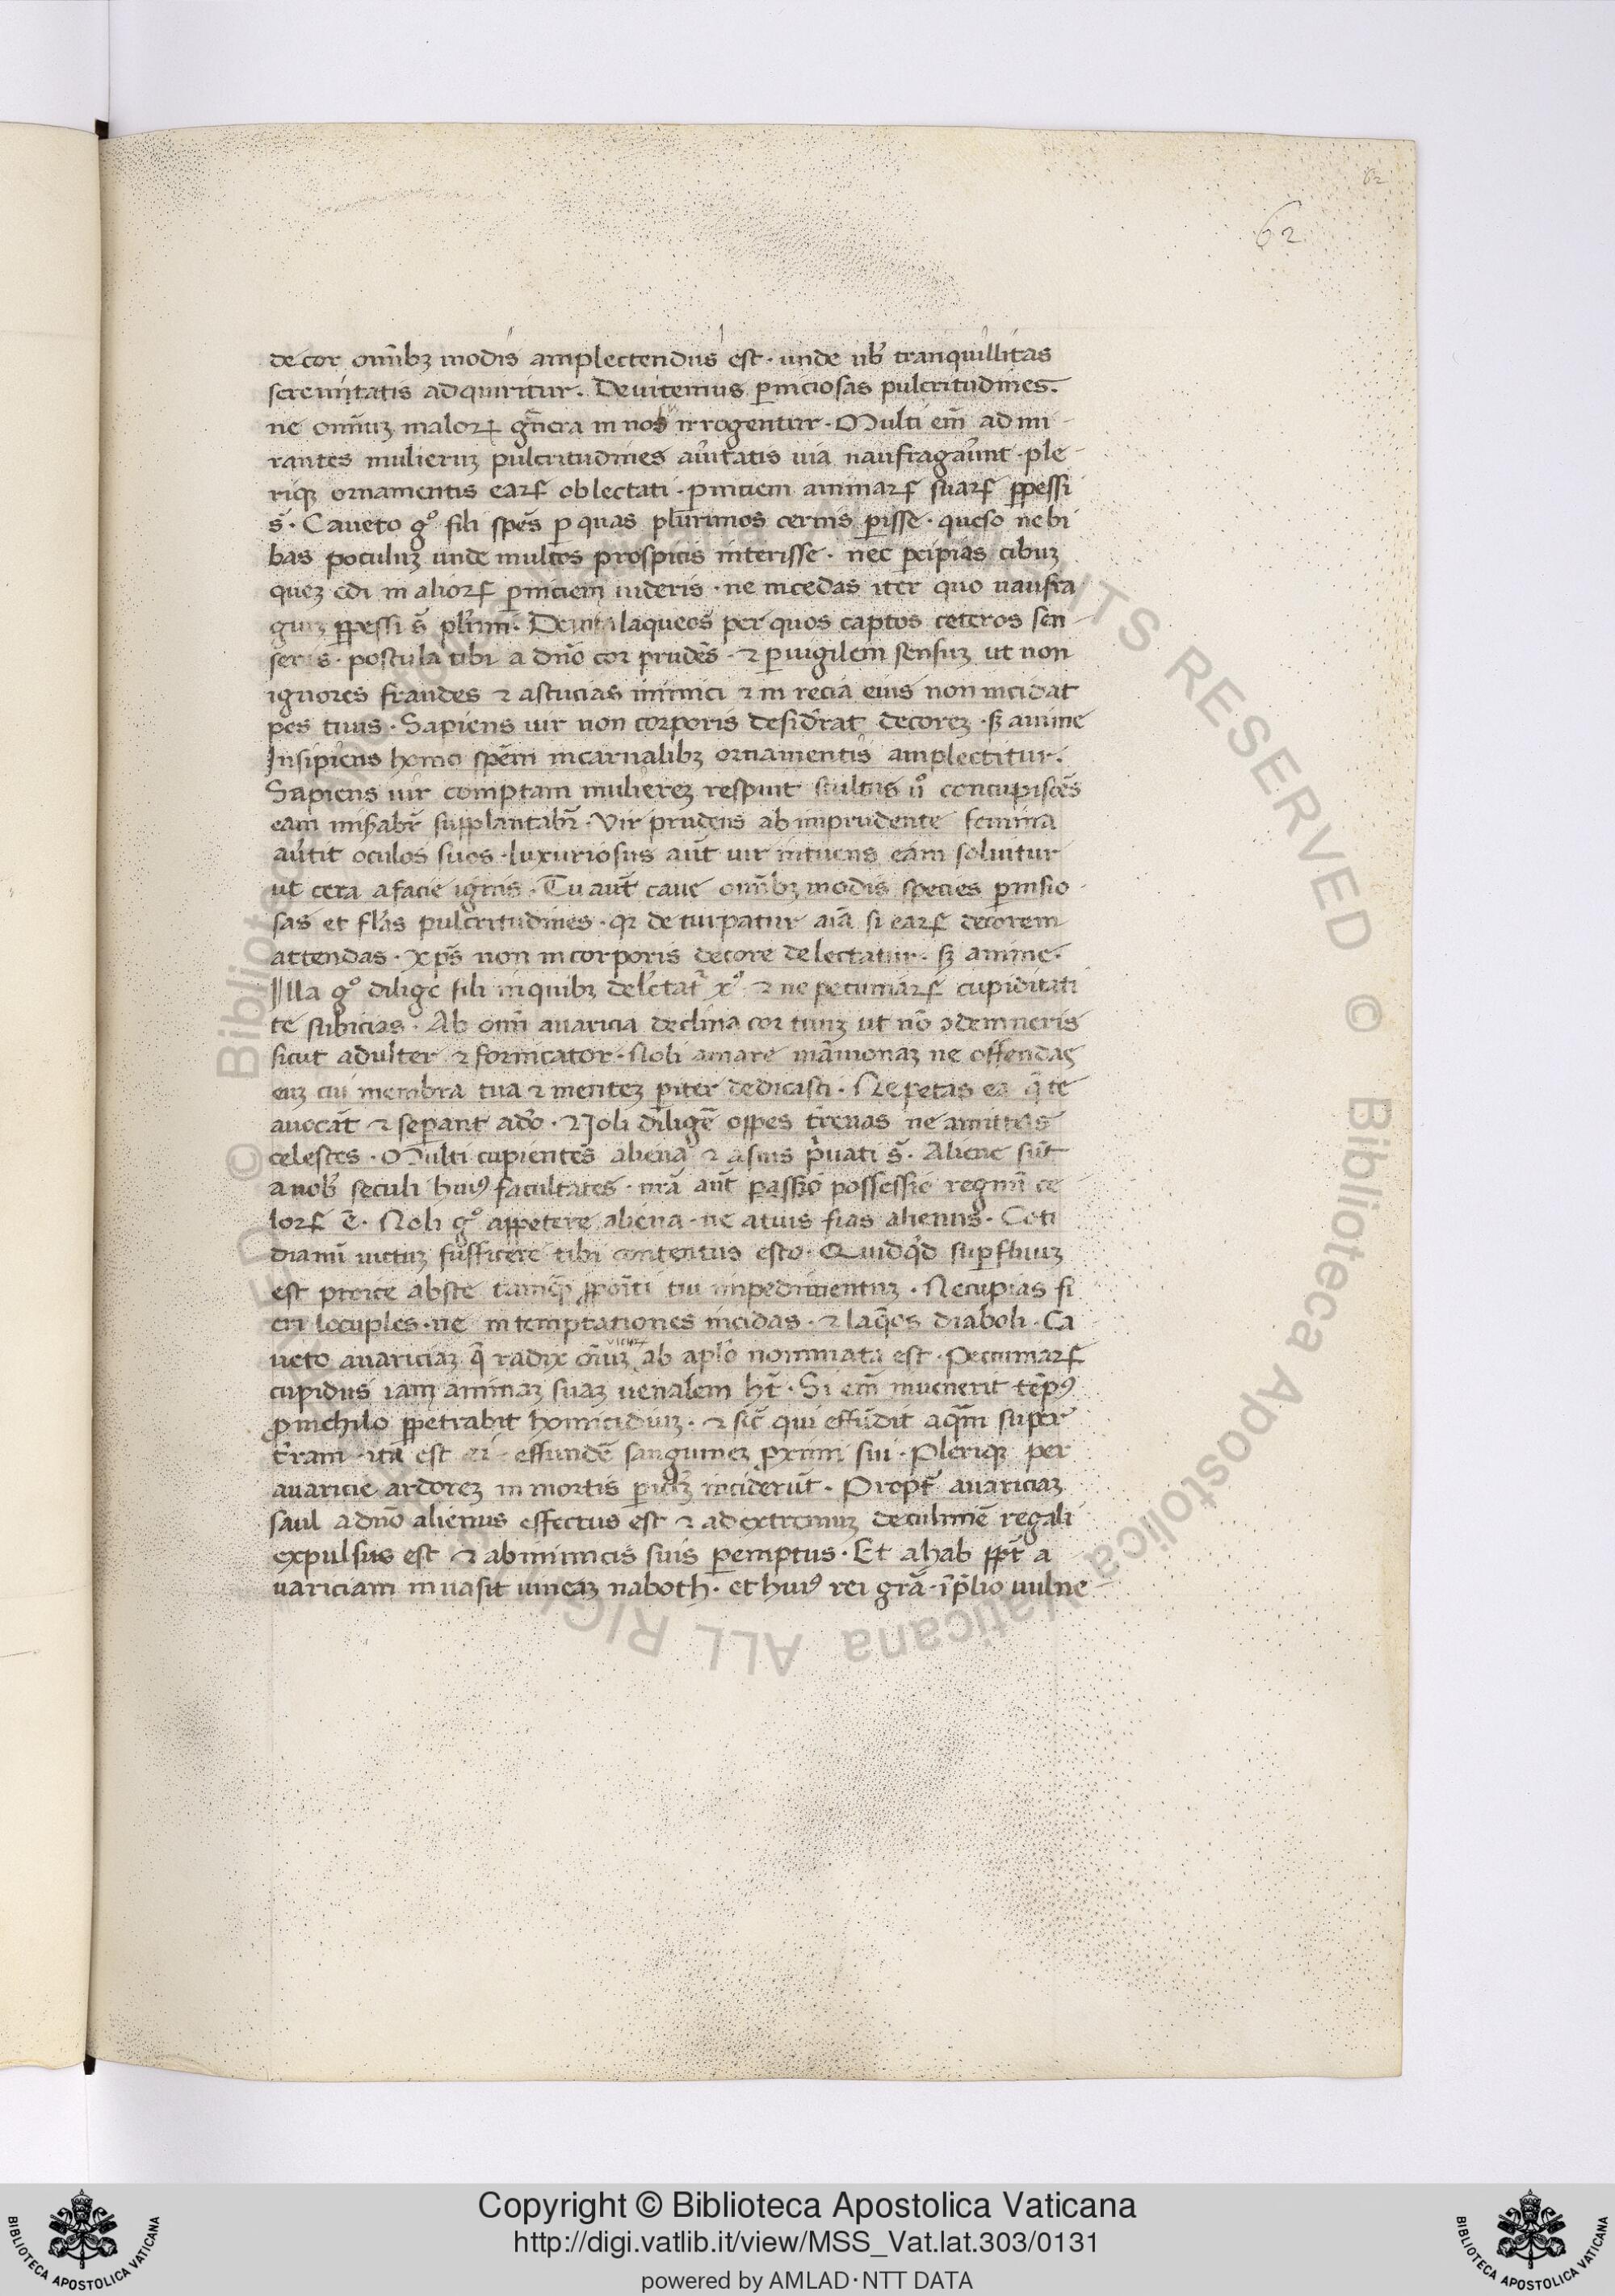 62
62
decor om̄ibꝫ modis amplectendus est · unde nob̄ tranquillitas
serenitatis adquiritur . Deuitemus ꝑniciosas pulcritudines .
ne omniuꝫ maloꝝ gn̄era in nos irrogentur · Multi em̄ admi-
rantes mulieruꝫ pulcritudines au̓itatis uia naufragau̓unt · ple-
riqꝫ ornamentis eaꝝ oblectati · ꝑniciem animaꝝ suaꝝ ꝑpessi
s̄ · Caueto gº fili spēs ꝑ quas plurimos cernis ꝑisse · queso ne bi
bas poculuꝫ unde multos prospicis interisse · nec ꝑcipias cibuꝫ
queꝫ edi in alioꝝ ꝑniciem uideris · ne incedas iter quo naufra
giuꝫ ꝑpessi s̄ plīmi · Deuita laqueos per quos captos ceteros sen-
seris · postula tibi a dn̄o cor prudēs · ⁊ ꝑuigilem sensuꝫ ut non
ignores fraudes ⁊ astucias inimici ⁊ in recia eius non incidat
pes tuus · Sapiens uir non corporis desid̓rat decoreꝫ · sꝫ anime
Insipiens homo spēm in carnalibꝫ ornamentis amplectitur .
Sapiens uir comptam muliereꝫ respuit stultus uº concupiscēs
eam supplantabr̄ · Vir prudens ab imprudente femina
au̓tit oculos suos · luxuriosus aūt uir intuens eam soluitur
ut cera a facie ignis · Tu aūt caue om̄ibꝫ modis species ꝑnisio-
sas et pulcritudines · qꝛ deturpatur aīa si eaꝝ decorem
attendas · xp̄s non in corporis decore delectatur · sꝫ anime ·
Illa gº dilige fili in quibꝫ delc̄tat᷑ xº ⁊ ne pecuniaꝝ cupiditati
te subicias · Ab om̄i auaricia declina cor tuuꝫ ut nō ꝯdemneris
sicut adulter ⁊ fornicator · Noli amare māmonaꝫ ne offendas
euꝫ cui membra tua ⁊ menteꝫ ꝑiter dedicasti · Ne petas ea q̄ te
auocāt ⁊ seꝑant a dō · Noli diligē̓ oppes t̓renas ne amittas
celestes · Multi cupientes aliena ⁊ a suis p̓uati s̄ · Aliene sūt
a nob̄ seculi huiꝰ facultates · nrā aūt possessio regnū ce
loꝝ ē · Noli gº appetere aliena · ne a tuis fias alienus · Coti
dianū uictuꝫ sufficere tibi contentus esto · Quidq̓d suꝑfluuꝫ
est proice abs te tamq̄ ꝓpoīti tui impedimentuꝫ · Ne cupias fi
eri locuples · ne in temptationes incidas · ⁊ laq̄os diaboli · Ca
ueto auariciaꝫ q̄ radix om̄iuꝫ ab aplō nominata est · Pecuniaꝝ
cupidus iam animaꝫ suaꝫ uenalem ht̄ · Si em̄ inuenerit tēpꝰ
ꝓ nichilo ꝑpetrabit homicidiuꝫ · ⁊ sic̄ qui effūdit aq̄m super
t̓ram · ita est ei · effundē̓ sanguineꝫ ꝓximi sui · Pleriqꝫ per
auaricie ardoreꝫ in mortis inciderūt · Propt̄ auariciaꝫ
saul a dn̄o alienus effectus est ⁊ ad extremuꝫ de culmine regali
expulsus est ⁊ ab inimicis suis ꝑemptus · Et ahab ꝓpt̄ a
uariciam inuasit uineaꝫ naboth · et huiꝰ rei grā · ī p̄lio uulne
Copyright © Biblioteca Apostolica Vaticana
http://digi.vatlib.it/view/MSS_Vat.lat.303/0131
powered by AMLAD·NTT DATA
BIBLIOTECA APOSTOLICA VATICANA
BIBLIOTECA APOSTOLICA VATICANA